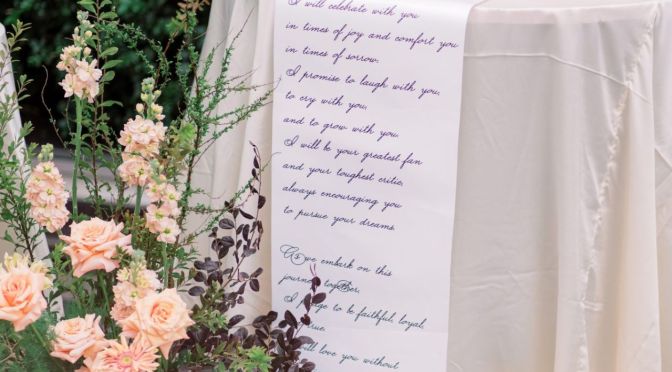 I will celebrate with you
in times of joy and comfort you
in times of sorrow.
I promise to laugh with you,
to cry with you,
and to grow with you.
I will be your greatest fan
and your toughest critic,
always encouraging you
to pursue your dreams.
As we embark on this
journey together,
I to be faithful, loyal,
love you without